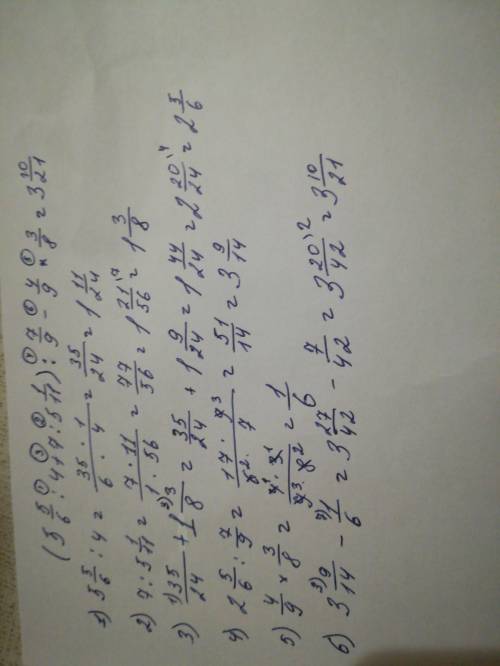 (5 5/6 ① : 4 + ③ 7 : ② 5 1/11) : ④ 7/9 - ⑥ 4/9 × ⑤ 3/8 = 3 10/21
1) 5 5/6 : 4 = 35 · 1 / 6 · 4 = 35/24 = 1 11/24
2) 7 : 5 1/11 = 7 · 11 / 1 · 56 = 77/56 = 1 21\7/56 = 1 3/8
3) 1) 35/24 + 1 3) 3/8 = 35/24 + 1 9/24 = 1 44/24 = 2 20\4/24 = 2 5/6
4) 2 5/6 : 7/9 = 17 · 9 3 / 6 2 · 7 = 51/14 = 3 9/14
5) 4/9 × 3/8 = 4 1 · 3 1 / 9 3 · 8 2 = 1/6
6) 3 3) 9/14 - 7) 1/6 = 3 27/42 - 7/42 = 3 20\2/42 = 3 10/21